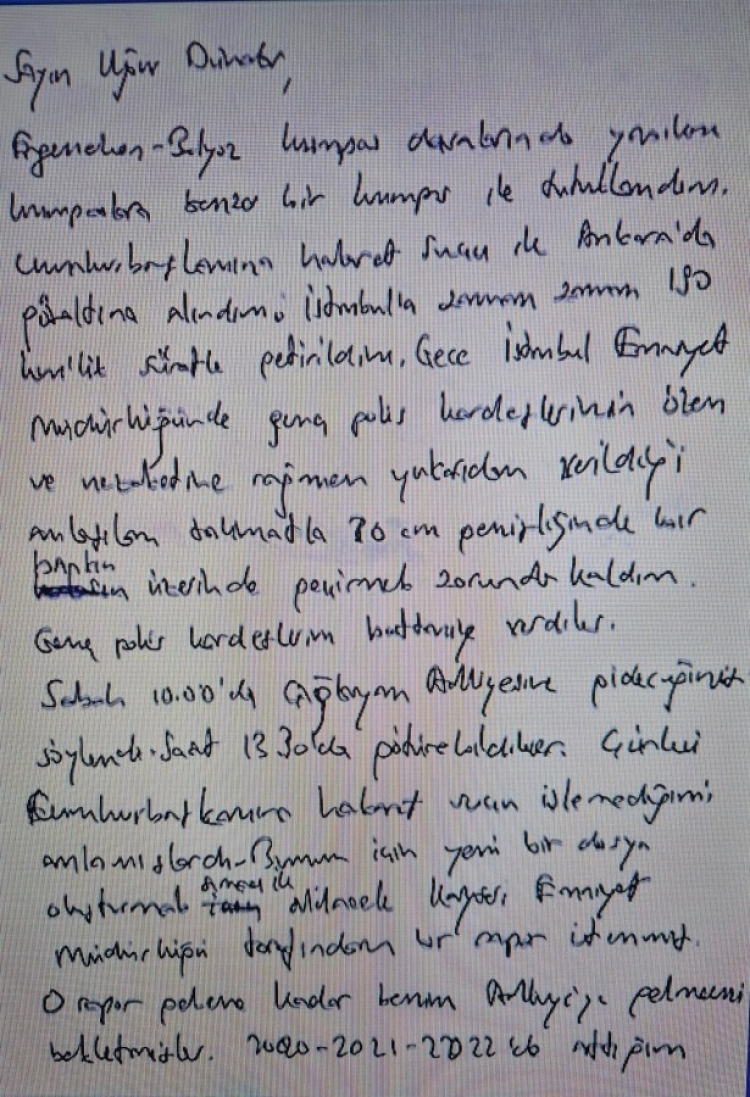 Sayın Uğur Dündar,
Ergenekon-Balyoz kumpas davalarında yapılan
kumpaslara benzer bir kumpas ile tutuklandım.
Cumhurbaşkanına hakaret suçu ile Ankara'da
gözaltına alındım. İstanbul'a zaman zaman 190
km'lik süratle getirildim. Gece İstanbul Emniyet
Müdürlüğünde genç polis kardeşlerinin özen
ve nezaketine rağmen yukarıdan verildiği
anlaşılan talimatla 70 cm genişliğinde bir
bankın üzerinde geçirmek zorunda kaldım.
Genç polis kardeşlerim battaniye verdiler.
Sabah 10.00'da Çağlayan Adliyesine gideceğimiz
söylendi. Saat 13 30'da götürebildiler. Çünkü
Cumhurbaşkanına hakaret suçu işlemediğimi
anlamışlardı. Bunun için yeni bir dosya
oluşturmak amacı ile alelacele Kayseri Emniyet
Müdürlüğü tarafından bir rapor istenmiş.
O rapor gelene kadar benim Adliyeye gelmemi
bekletmişler. 2020-2021-2022 de attığım